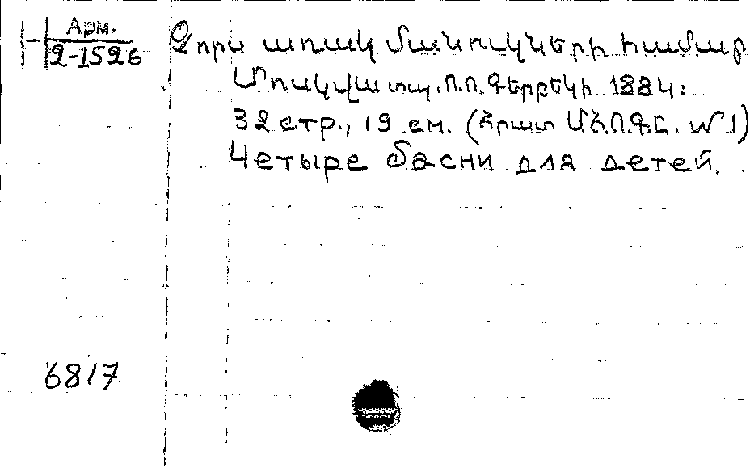 Арм.
2-1526
Չորս առակ մանուկների համար
Մոսկվա տպ. Օ.Օ. Գերբեկի 1884:
32 стр., 19 см. (Հրատ №1)
Четыре басни для детей.
6817